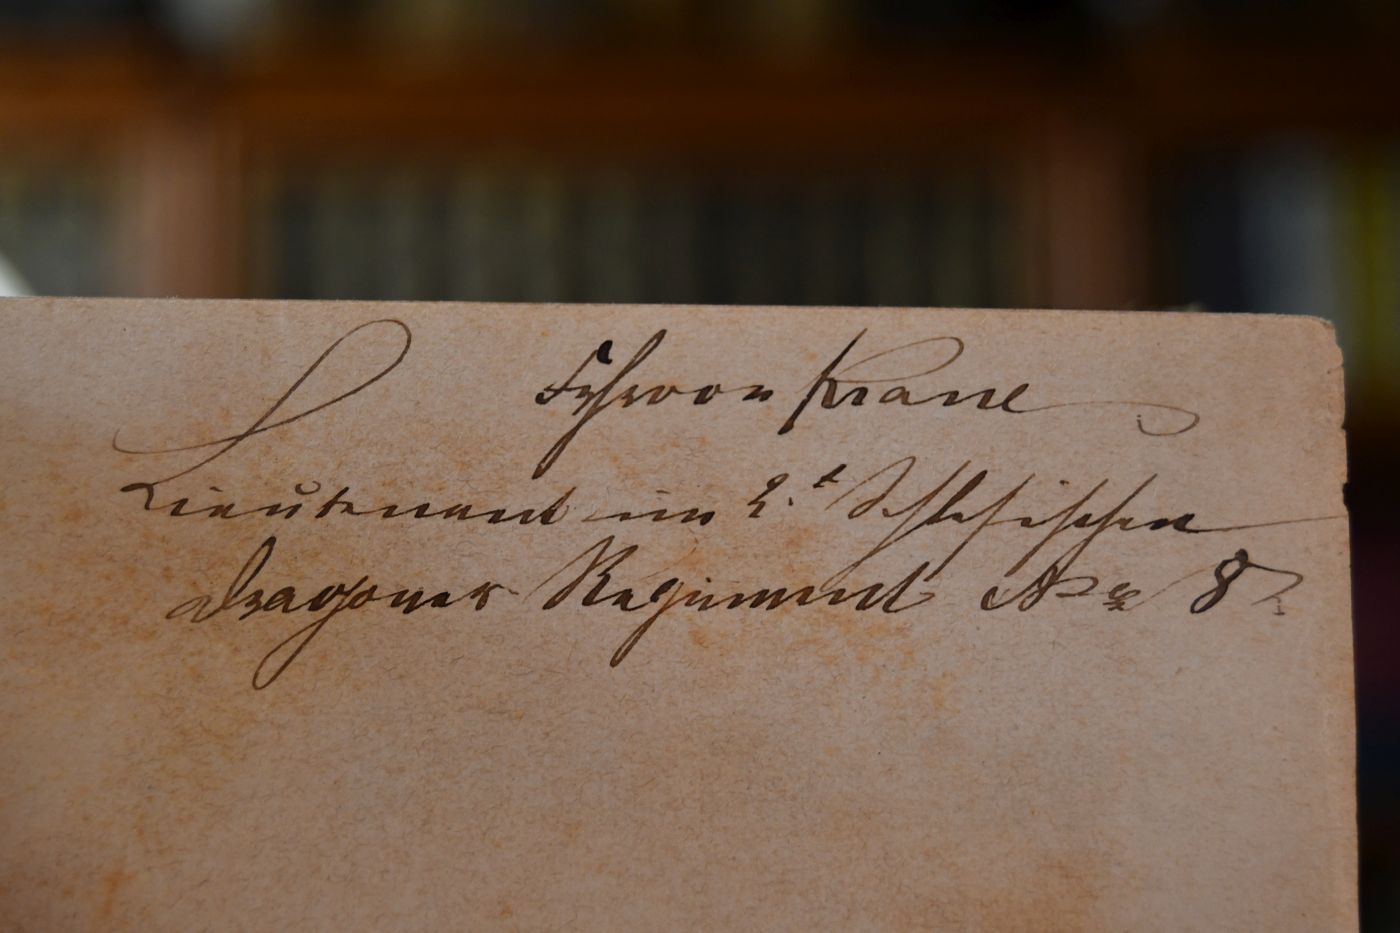 Frhr von Krane
Lieutenant im 2.t Schlesischen
Dragoner Regiment No 8.